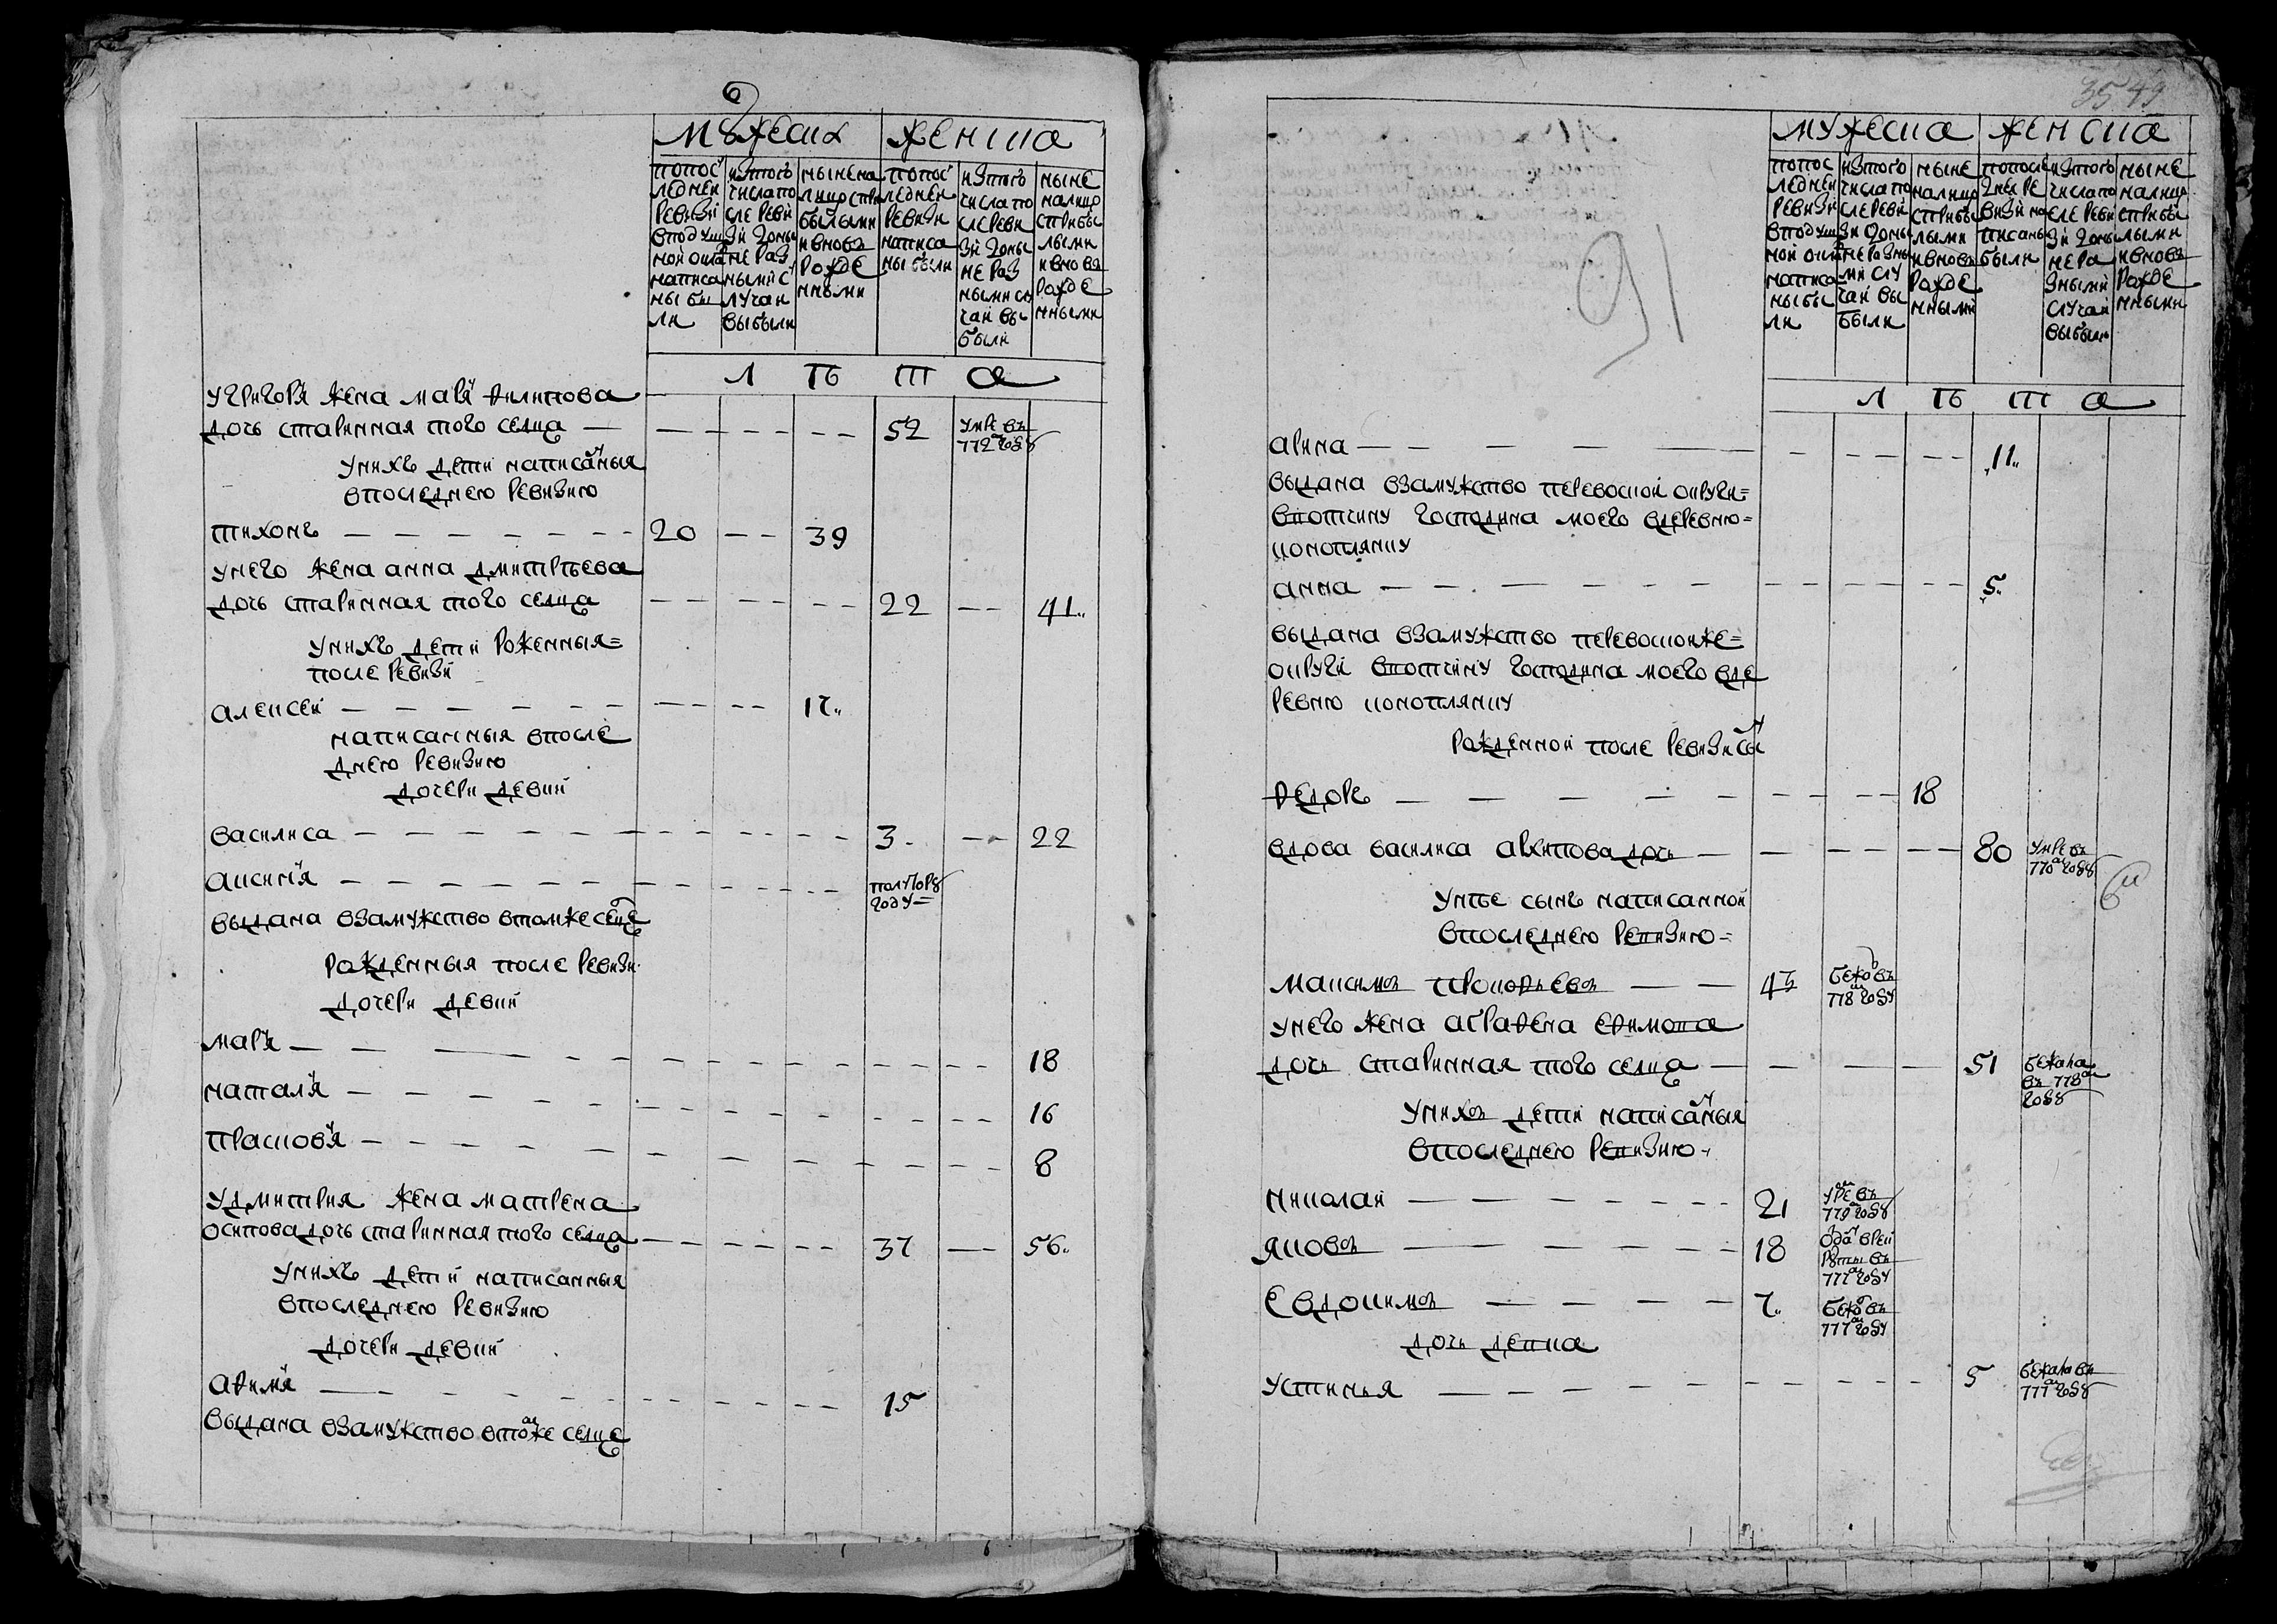 6
мужеска женска
попос
ледней
ревизи
вподуш
ной окла
написа
ны бы
ли
изтого
числа по
сле реви
зи доны
не раз
ными с
лучаи
выбыли
ныне на
лицо спри
былыми
и вновь
рожде
нными
попос
ледней
ревизи
написа
ны были
изтого
числа по
сле реви
зи доны
не раз
ными слу
чаи вы
были
ныне
налицо
сприбы
лыми
и вновь
рожде
нными
л ѣ т а
угригоря жена маря филипова
дочь старинная того селца — 52 умре въ 772м году
унихъ дети написаныя
впоследнею ревизию
тихонъ — 20 — 39
унего жена анна дмитрьева
дочь старинная того селца — 22 — 41
унихъ дети роженныя=
после ревизи
алексеи — 17
написанныя впосле
днею ревизию
дочери девки
василиса — 3 — 22
аксиния — полутора году=
выдана взамужство втомже селце
рожденныя после ревизи
дочери девки
маря — 18
наталя — 16
прасковя — 8
удмитрия жена матрена
осипова дочь старинная того селца — 37 — 56
унихъ дети написанныя
впоследнею ревизию
дочери девки
афимя — 15
выдана взамужство втомже селце
35 49
91
мужеска женска
попос
ледней
ревизи
вподуш
ной окла
написа
ны бы
ли
изтого
числа по
сле реви
зи доны
не разны
ми слу
чаи вы
были
ныне
налицо
сприбы
лыми
и вновь
рожде
нными
попосле
дней ре
визи на
писаны
были
изтого
числа по
сле реви
зи доны
не ра
зными
случаи
выбыли
ныне
налицо
сприбы
лыми
и вновь
рожде
нными
л ѣ т а
арина — 11
выдана взамужство перевоской округи=
ввотчину господина моего вдеревню=
коноплянку
анна — 5
выдана взамужство перевоскойже=
округи ввотчину господина моего вде
ревню коноплянку
рожденной после ревизи сынъ
федоръ — 18
вдова василиса архипова дочь — 80 умре въ 770м году
унее сынъ написанной
впоследнею ревизию=
максимъ прокофьевъ — 43 бежа въ 778м году
унего жена аграфена ефимова
дочь старинная того селца — 51 бежала въ 778м году
унихъ дети написаныя
впоследнею ревизию
николаи — 21 умре въ 779м году
яковъ — 18 одан врек руты въ 777м году
евдокимъ — 7 бежа въ 777м году
дочь девка
устинья — 5 бежала въ 777м году